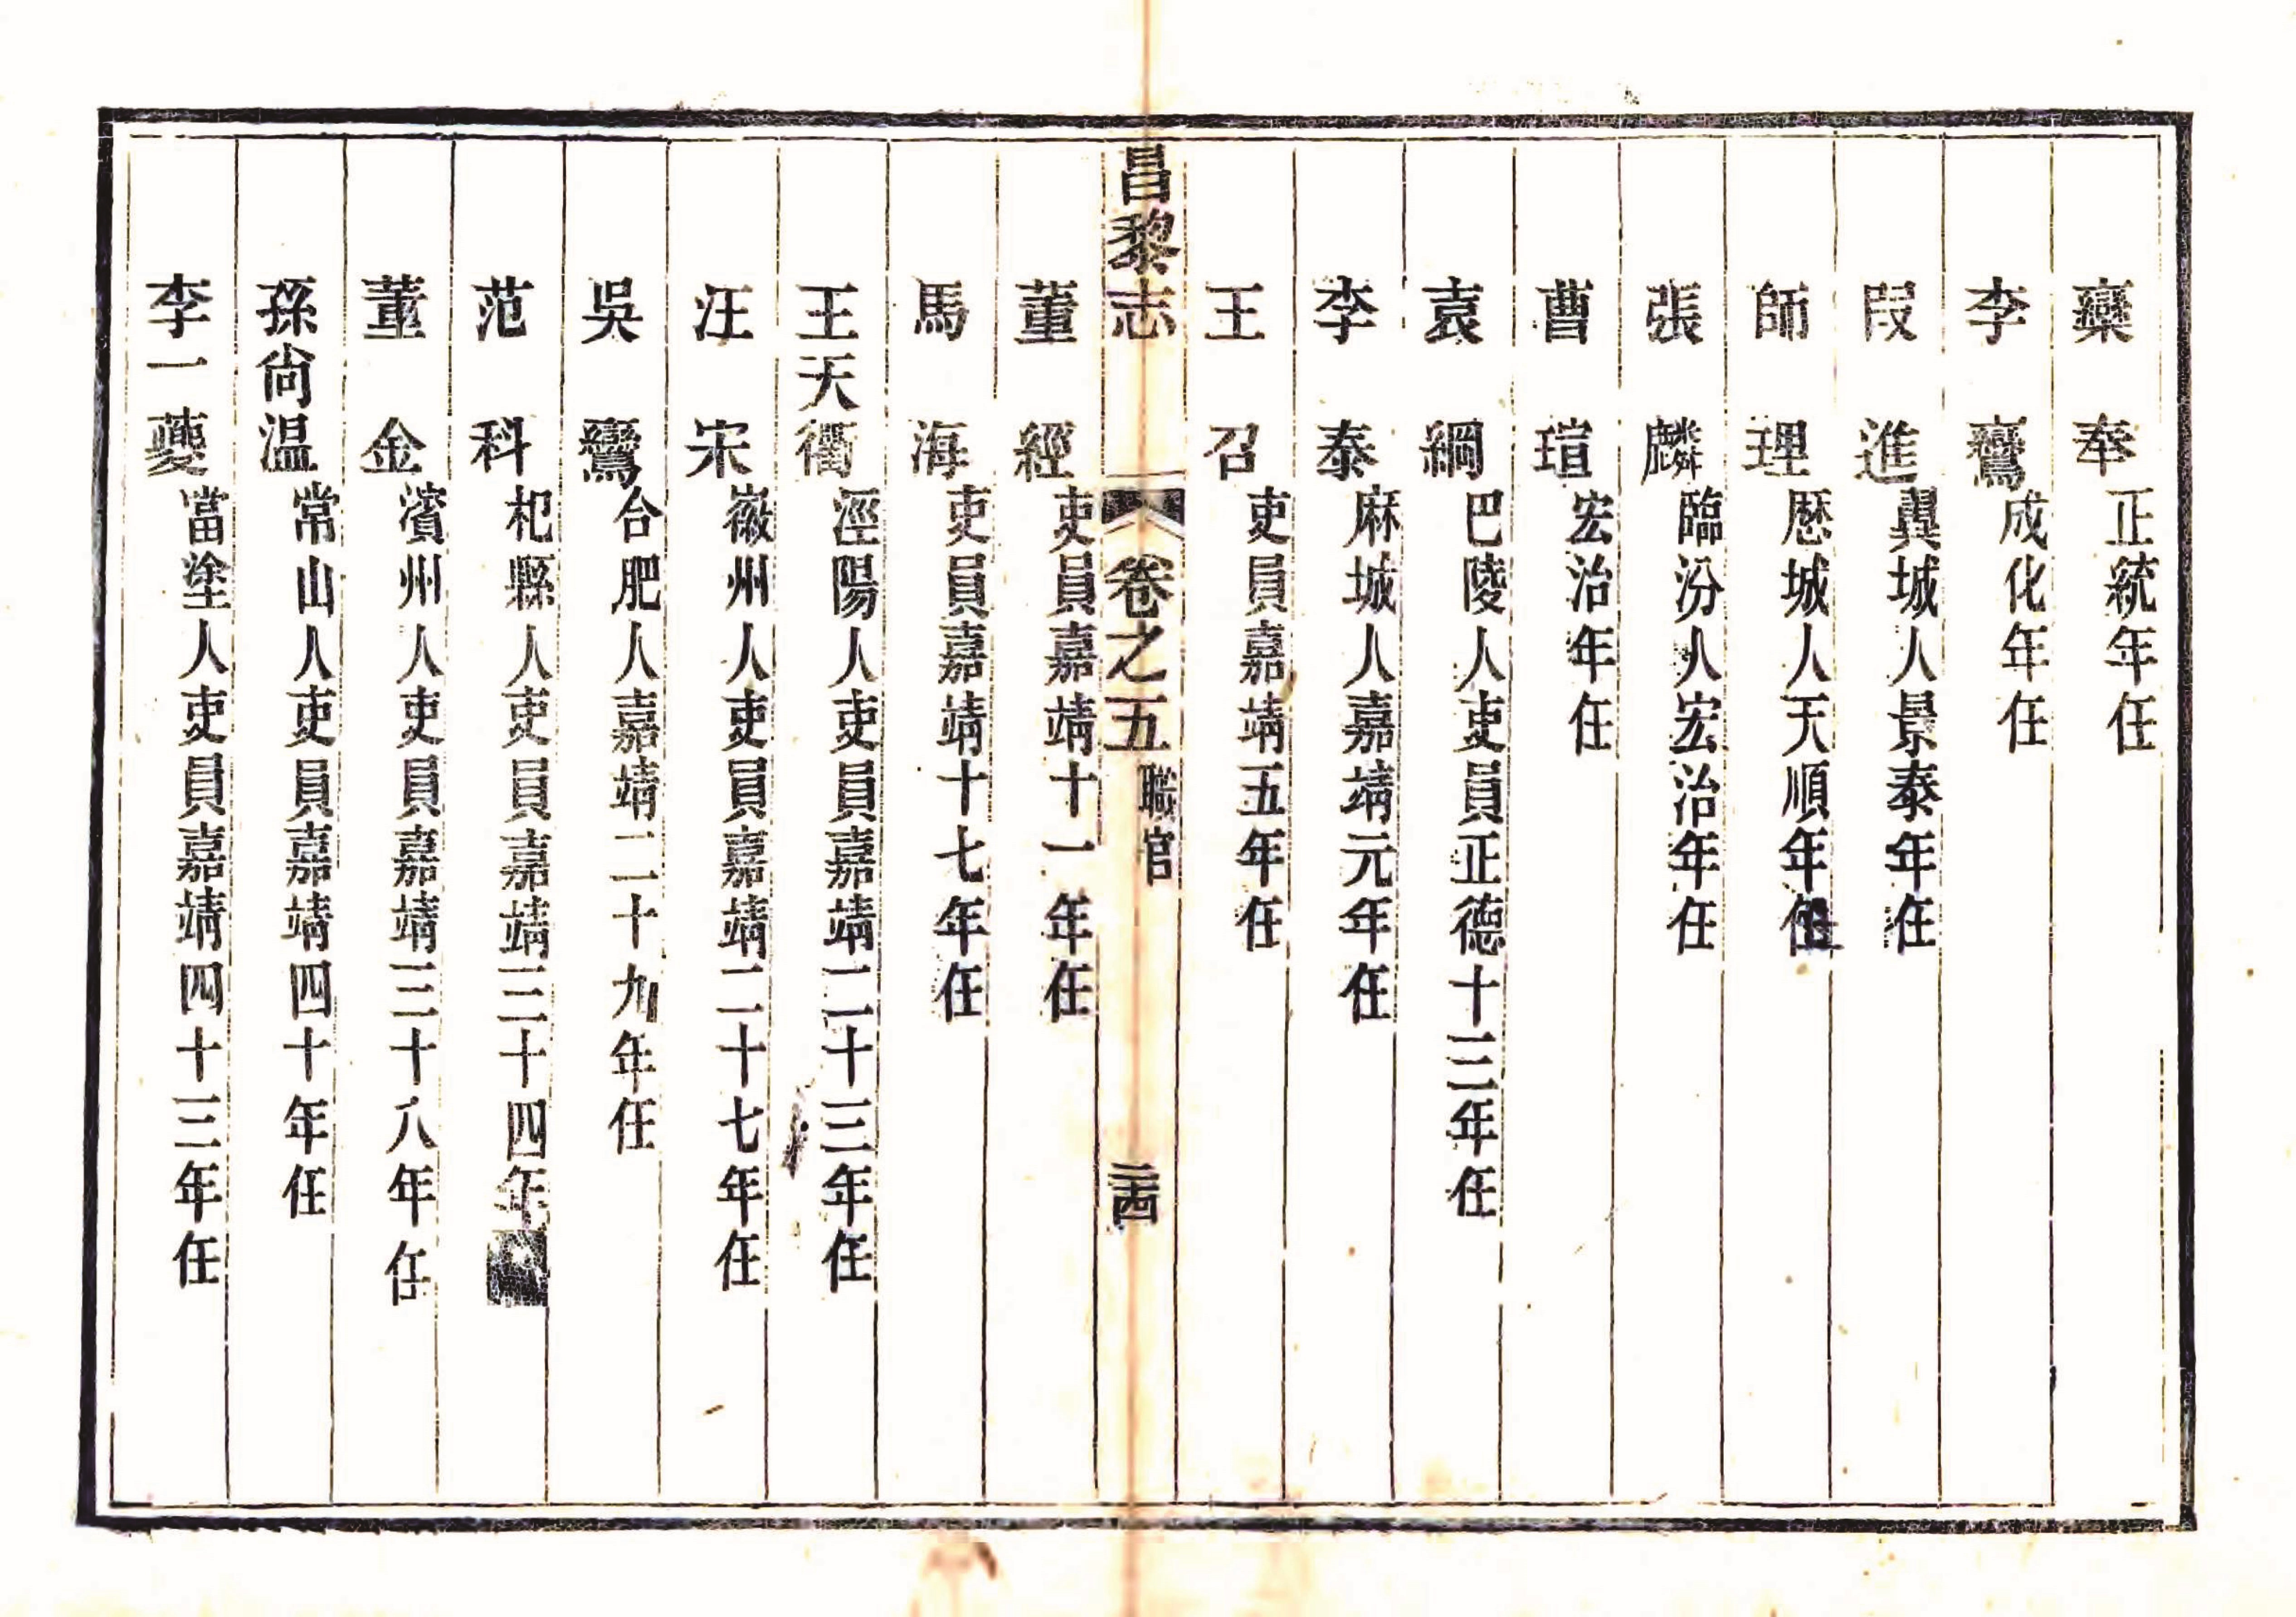 欒奉正統年任
李鸞成化年任
段進翼城人景泰年任
師理歷城人天順年任
張麟臨汾人宏治年任
曹瑄宏治年任
袁綱巴陵人吏員正德十三年任
李泰麻城人嘉靖元年任
王召吏員嘉靖五年任
昌黎志 卷之五 職官 二十四
董經吏員嘉靖十一年任
馬海吏員嘉靖十七年任
王天衢涇陽人吏員嘉靖二十三年任
汪宋徽州人吏員嘉靖二十七年任
吳鸞合肥人嘉靖二十九年任
范科杞縣人吏員嘉靖三十四年
董金濱州人吏員嘉靖三十八年任
孫尙温常山人吏員嘉靖四十年任
李一夔當塗人吏員嘉靖四十三年任